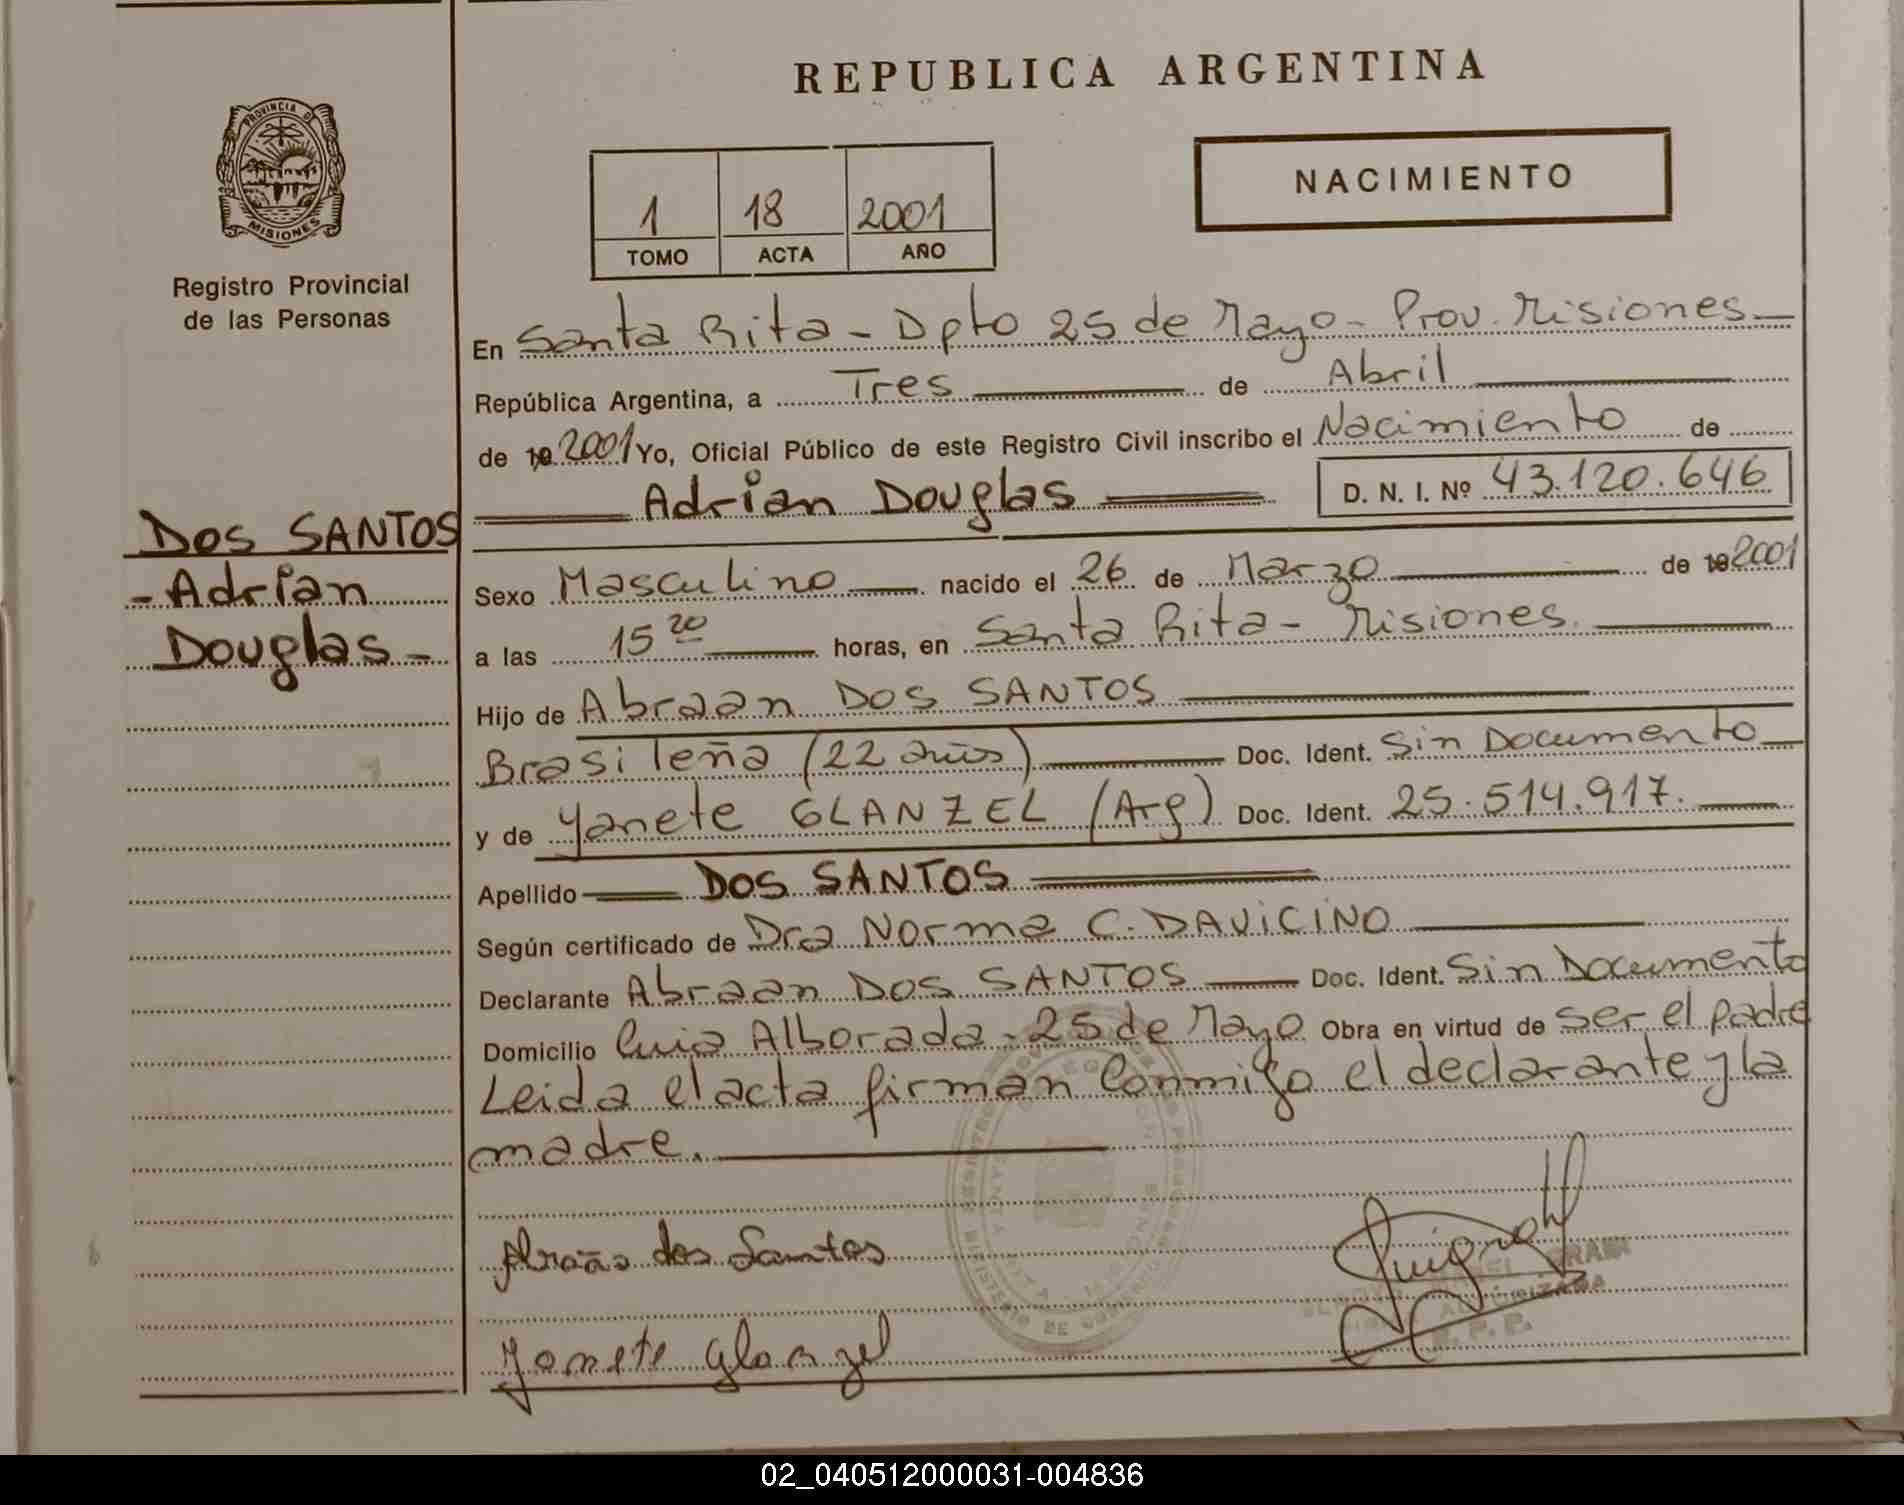 REPUBLICA ARGENTINA
PROVINCIA DE
MISIONES
Registro Provincial
de las Personas
1 18 2001
TOMO ACTA AÑO
NACIMIENTO
En Santa Rita - Dpto 25 de Mayo - Prov. Misiones
República Argentina, a Tres de Abril
de 19 2001 Yo, Oficial Público de este Registro Civil inscribo el Nacimiento de
Adrian Douglas D. N. I. Nº 43.120.646
DOS SANTOS
- Adrian
Douglas -
Sexo Masculino nacido el 26 de Marzo de 19 2001
a las 15 20 horas, en Santa Rita - Misiones.
Hijo de Abraan DOS SANTOS
Brasileña (22 años) Doc. Ident. Sin Documento
y de Yanete GLANZEL (Arg) Doc. Ident. 25.514.917.
Apellido DOS SANTOS
Según certificado de Dra Norma C. DAVICINO
Declarante Abraan DOS SANTOS Doc. Ident. Sin Documento
Domicilio Alborada - 25 de Mayo Obra en virtud de ser el padre
Leida el acta firman conmigo el declarante y la
madre.
Abraão dos Santos
Yanete Glanzel
02_040512000031-004836